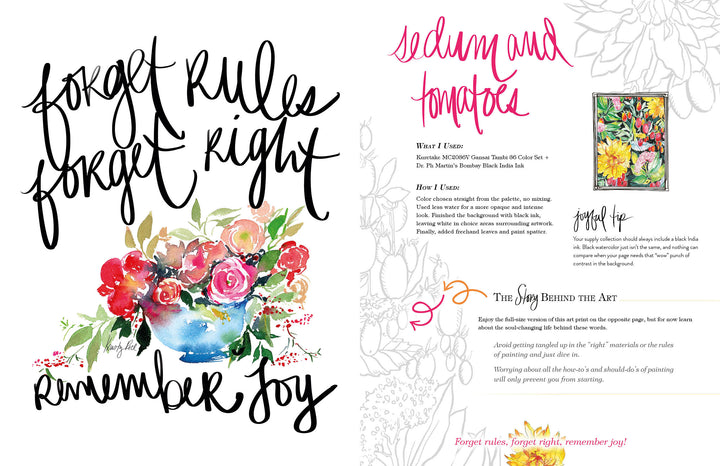 forget rules
forget right
remember joy
sedum and
tomatoes
What I Used:
Kuretake MC2036V Gansai Tambi 36 Color Set +
Dr. Ph Martin's Bombay Black India Ink
How I Used:
Color chosen straight from the palette, no mixing.
Used less water for a more opaque and intense
look. Finished the background with black ink,
leaving white in choice areas surrounding artwork.
Finally, added freehand leaves and paint spatter.
joyful tip
Your supply collection should always include a black India
ink. Black watercolor just isn't the same, and nothing can
compare when your page needs that "wow" punch of
contrast in the background.
The Story Behind the Art
Enjoy the full-size version of this art print on the opposite page, but for now learn
about the soul-changing life behind these words.
Avoid getting tangled up in the "right" materials or the rules
of painting and just dive in.
Worrying about all the how-to's and should-do's of painting
will only prevent you from starting.
Forget rules, forget right, remember joy!